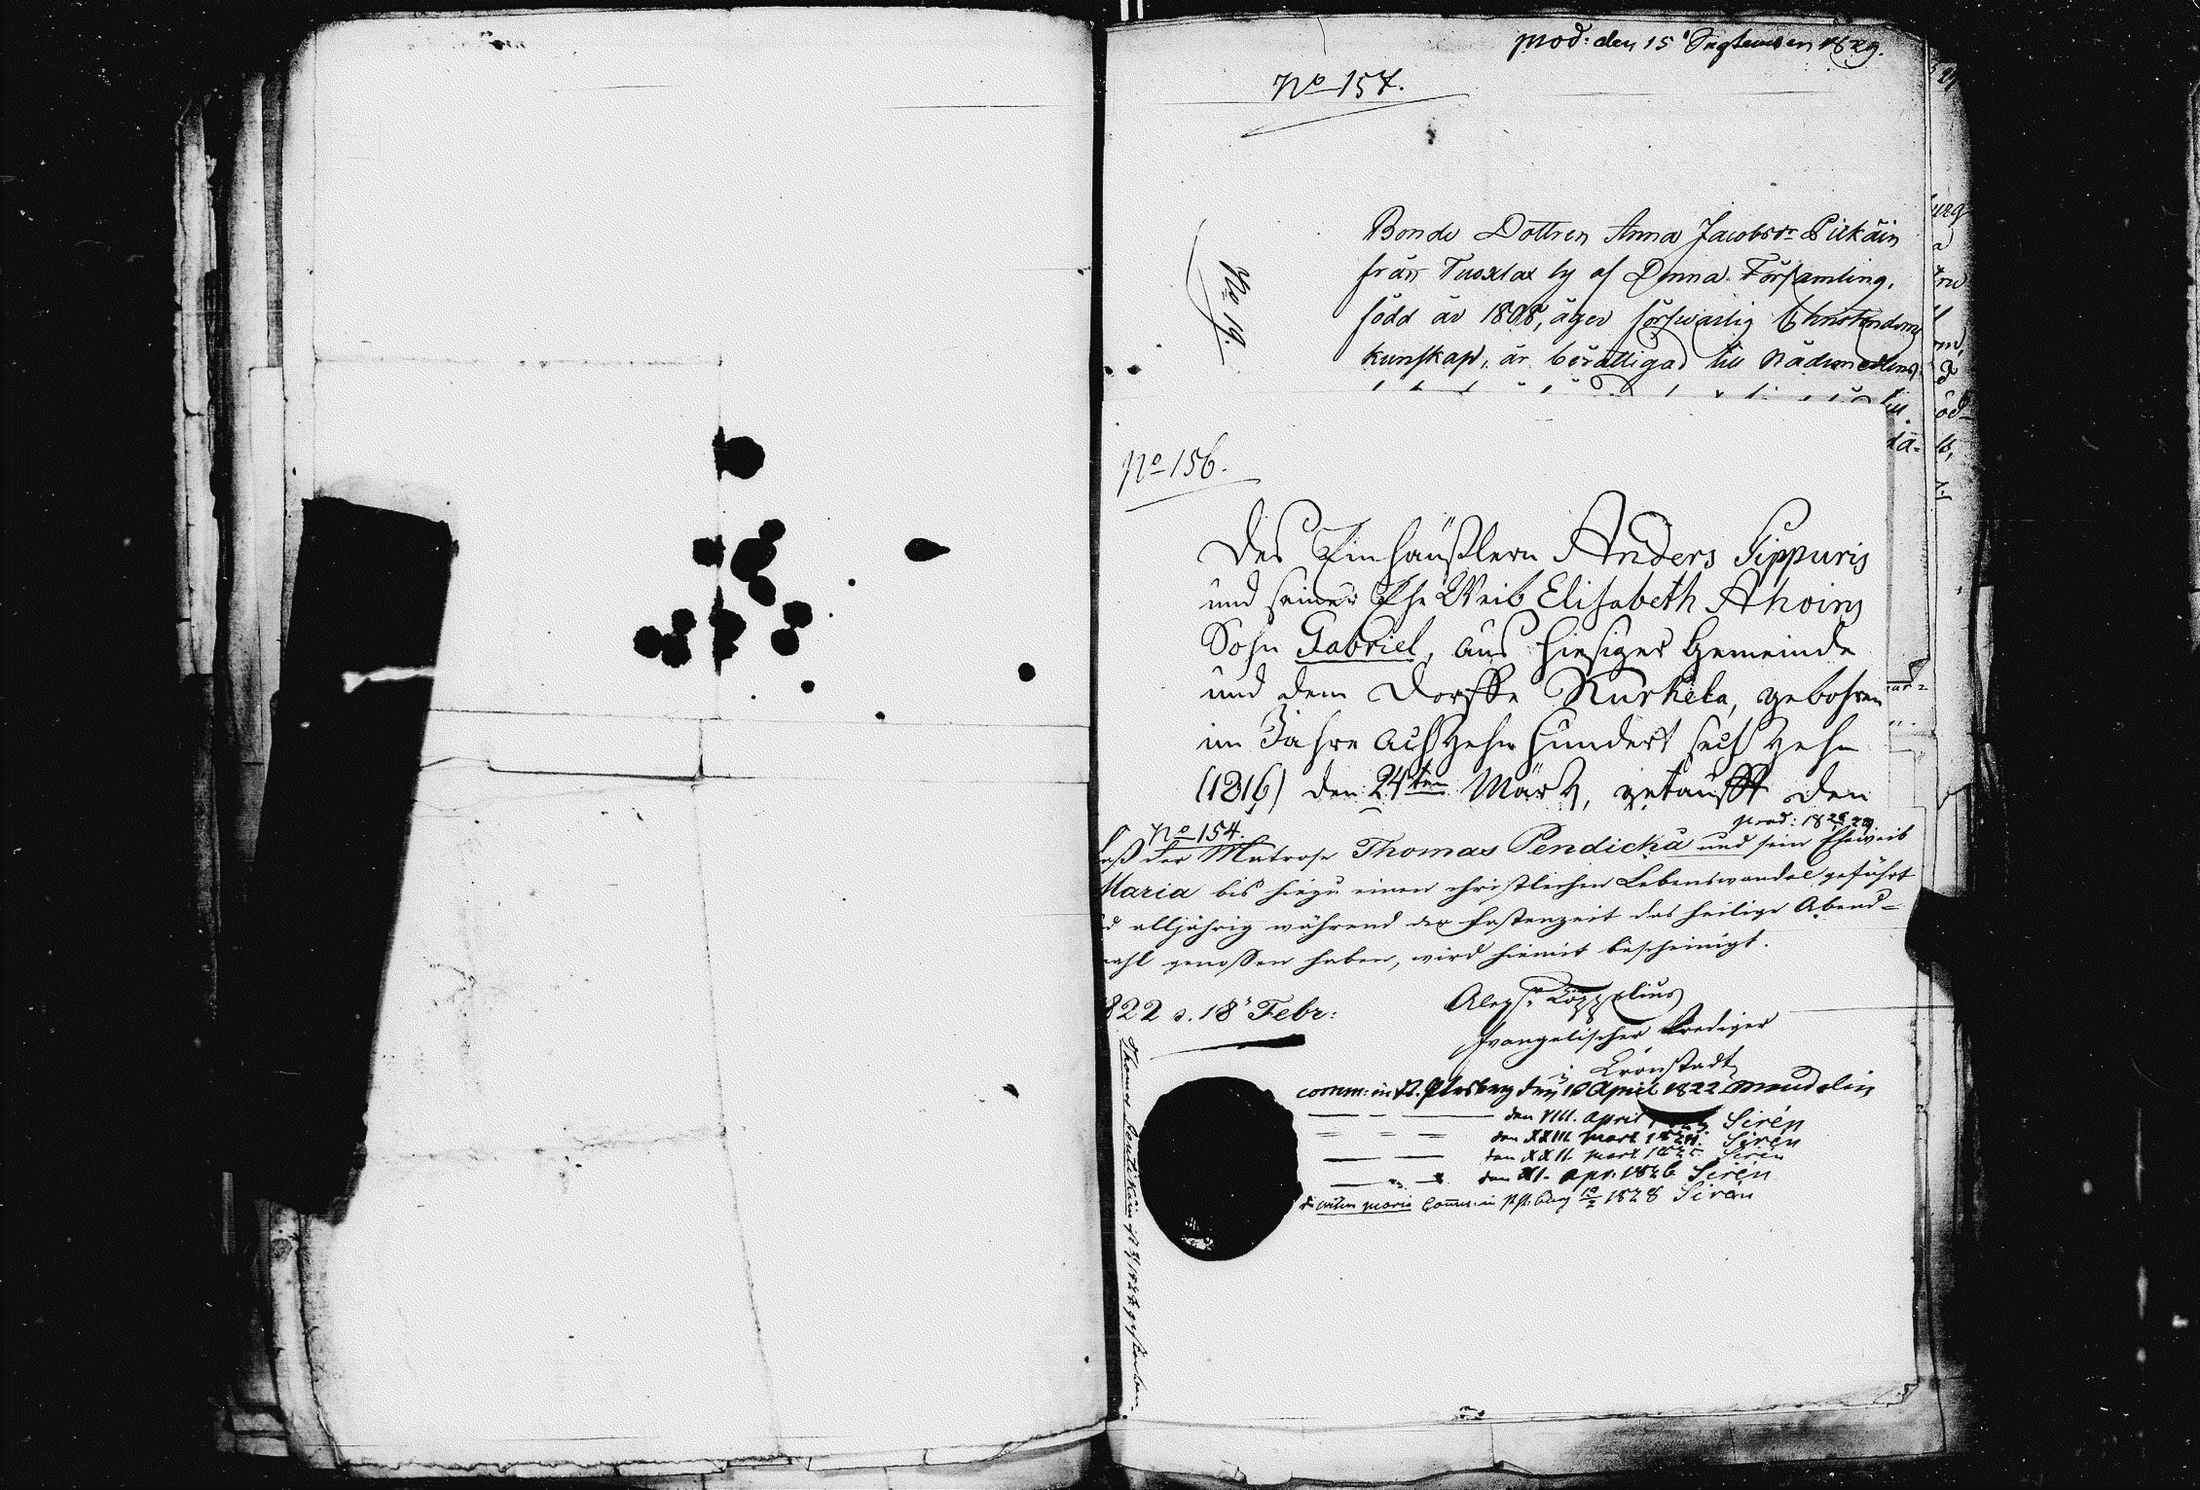 prod: den 15 September 1829.
No 157.
No 19.
Bonde Dottren Anna Jacobsdr Pirkäin
från Tuoxlax by af Denna Församling,
född år 1808, äger försvarlig Christendoms
kunskap, är berättigad till Nådemedlens
No 156.
Des Einhäußlern Anders Sippuris
und seiner Ehe Weib Elisabeth Ahoins
Sohn Gabriel, aus hiesiger Gemeinde
und dem Dorffe Kurkela, gebohren
im Jahre achtzehn hundert sechzehn
(1816) den 24ten März, getaufft den
No 154.
daß der Matrose Thomas Pendickä und sein Eheweib
Maria bis hiezu einen christlichen Lebenswandel geführt
alljährig während der Fastenzeit das heilige Abend=
mahl genossen haben, wird hiemit bescheinigt.
1822 d. 18 Febr:
Evangelischer Prediger
Cronstadt
comm: in St. Ptrsbrg den 10 April 1822 Mendelin
den VIII. April Sirén
den XXIII. Mart. 1824. Sirén
den XXII. Mart. 1825 Sirén
den XI. Apr. 1826 Sirén
Maria Comm: in 1828 Sirén
Thomas ist gestorben.